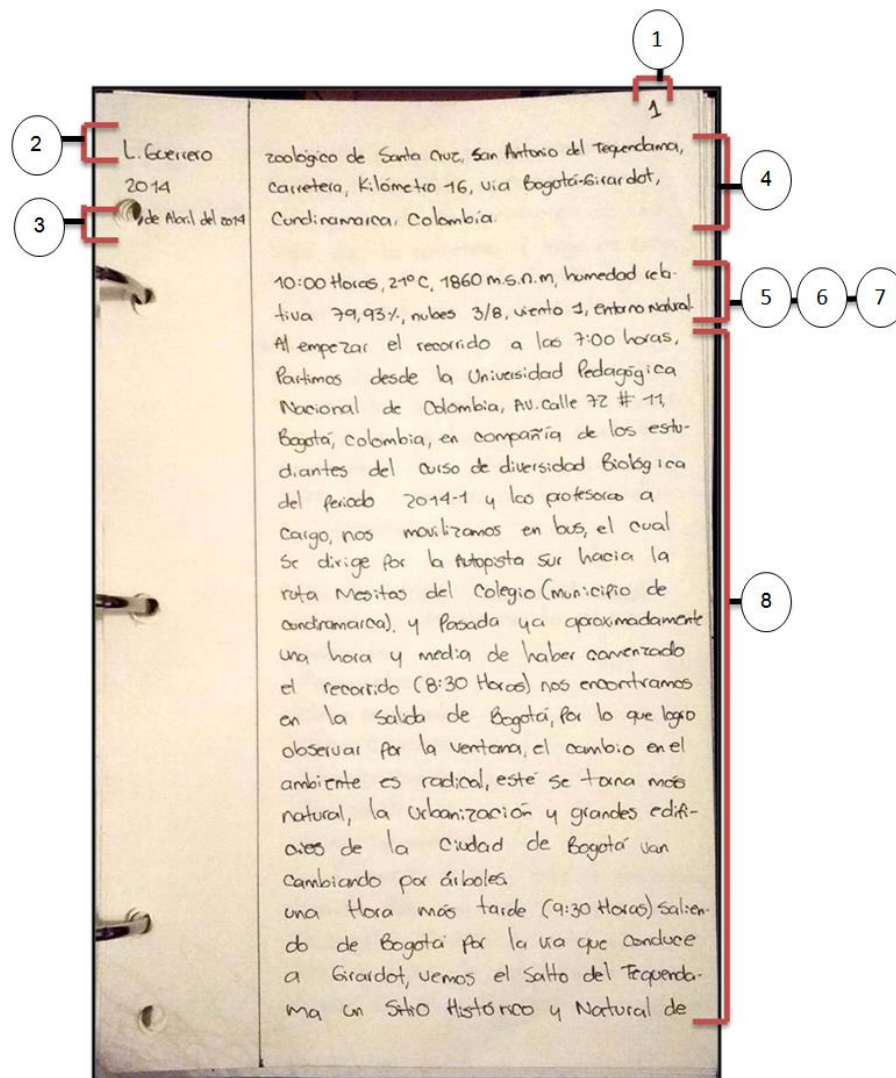 1
1
2
L. Guerrero
2014
3
de Abril del 2014
zoológico de Santa Cruz, San Antonio del Tequendama,
Carretera, Kilómetro 16, via Bogotá-Girardot,
Cundinamarca, Colombia.
4
10:00 Horas, 21°C, 1860 m.s.n.m, humedad rela-
tiva 79,93%, nubes 3/8, viento 1, entorno Natural.
5
6
7
Al empezar el recorrido a las 7:00 horas,
Partimos desde la Universidad Pedagógica
Nacional de Colombia, AV. calle 72 # 11,
Bogotá, Colombia, en compañía de los estu-
diantes del curso de diversidad Biológica
del Periodo 2014-1 y los profesores a
Cargo, nos movilizamos en bus, el cual
se dirige por la Autopista sur hacia la
ruta Mesitas del Colegio (municipio de
cundinamarca), y Pasada ya aproximadamente
una hora y media de haber comenzado
el recorrido (8:30 Horas) nos encontramos
en la Salida de Bogotá, Por lo que logro
observar por la ventana, el cambio en el
ambiente es radical, esté se torna más
natural, la urbanización y grandes edifi-
cios de la Ciudad de Bogotá van
Cambiando por árboles.
una Hora más tarde (9:30 Horas) salien-
do de Bogotá por la via que conduce
a Girardot, vemos el Salto del Tequenda-
ma un Sitio Histórico y Natural de
8